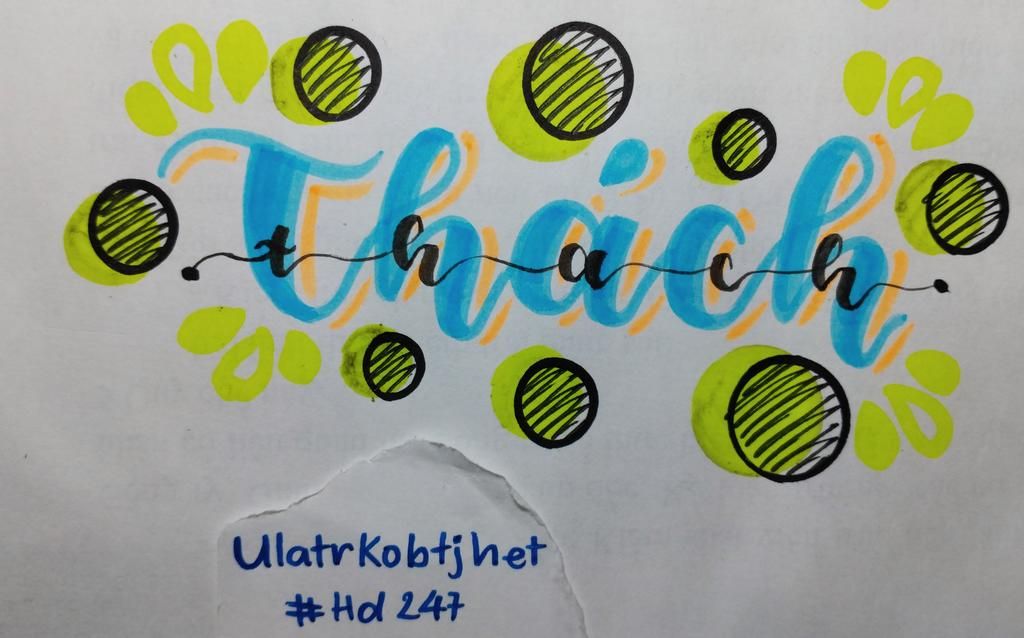 Thách
thach
UlatrKobtjhet
#Hd 247